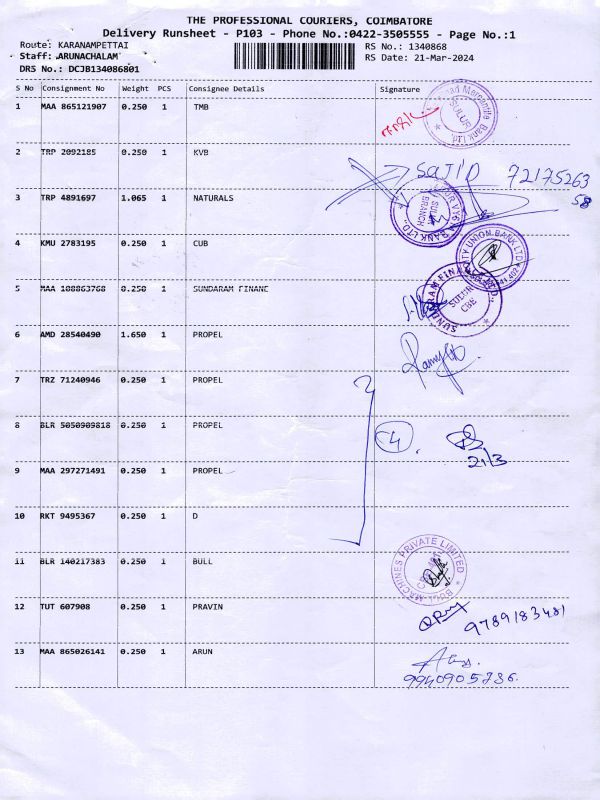 THE PROFESSIONAL COURIERS, COIMBATORE
Delivery Runsheet - P103 - Phone No.:0422-3505555 - Page No.:1
Route: KARANAMPETTAI RS No.: 1340868
Staff: ARUNACHALAM RS Date: 21-Mar-2024
DRS No.: DCJB134086801
S No Consignment No Weight PCS Consignee Details Signature
1 MAA 865121907 0.250 1 TMB
SULUR
2 TRP 2092185 0.250 1 KVB
SAJID 72175263
58
3 TRP 4891697 1.065 1 NATURALS
SULUR BRANCH BANK LTD.
4 KMU 2783195 0.250 1 CUB
CITY UNION BANK LTD
5 MAA 108863768 0.250 1 SUNDARAM FINANE
SUNDARAM FINANCE LTD. SULUR CBE
6 AMD 28540490 1.650 1 PROPEL
7 TRZ 71240946 0.250 1 PROPEL
8 BLR 5050909818 0.250 1 PROPEL
4
21/3
9 MAA 297271491 0.250 1 PROPEL
10 RKT 9495367 0.250 1 D
11 BLR 140217383 0.250 1 BULL
BULL MACHINES PRIVATE LIMITED
12 TUT 607908 0.250 1 PRAVIN
9789183481
13 MAA 865026141 0.250 1 ARUN
9940905736.